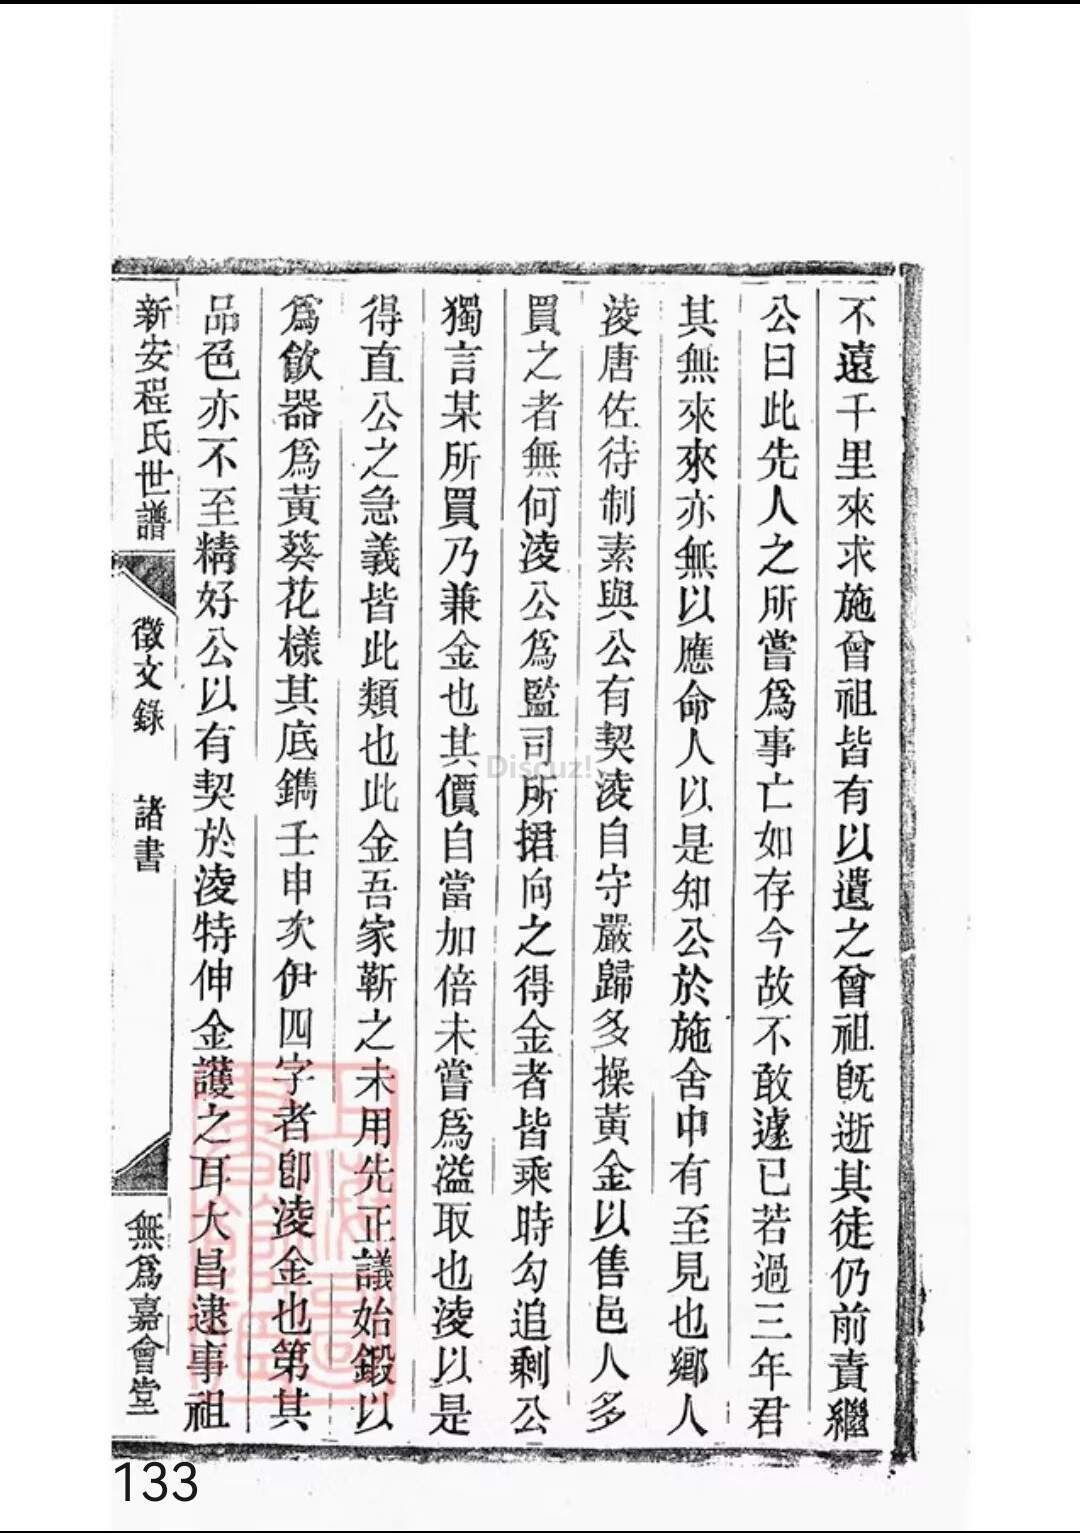 不遠千里來求施曾祖皆有以遺之曾祖旣逝其徒仍前責繼
公曰此先人之所嘗爲事亡如存今故不敢遽已若過三年君
其無來來亦無以應命人以是知公於施舍中有至見也鄉人
淩唐佐待制素與公有契淩自守嚴歸多操黃金以售邑人多
買之者無何淩公爲監司所捃向之得金者皆乘時勾追剩公
獨言某所買乃兼金也其價自當加倍未嘗爲溢取也淩以是
得直公之急義皆此類也此金吾家靳之未用先正議始鍛以
爲飲器爲黃葵花樣其底鐫壬申次伊四字者卽淩金也第其
品色亦不至精好公以有契於淩特伸金護之耳大昌逮事祖
新安程氏世譜
徵文錄
諸書
無爲嘉會堂
Discuz!
133